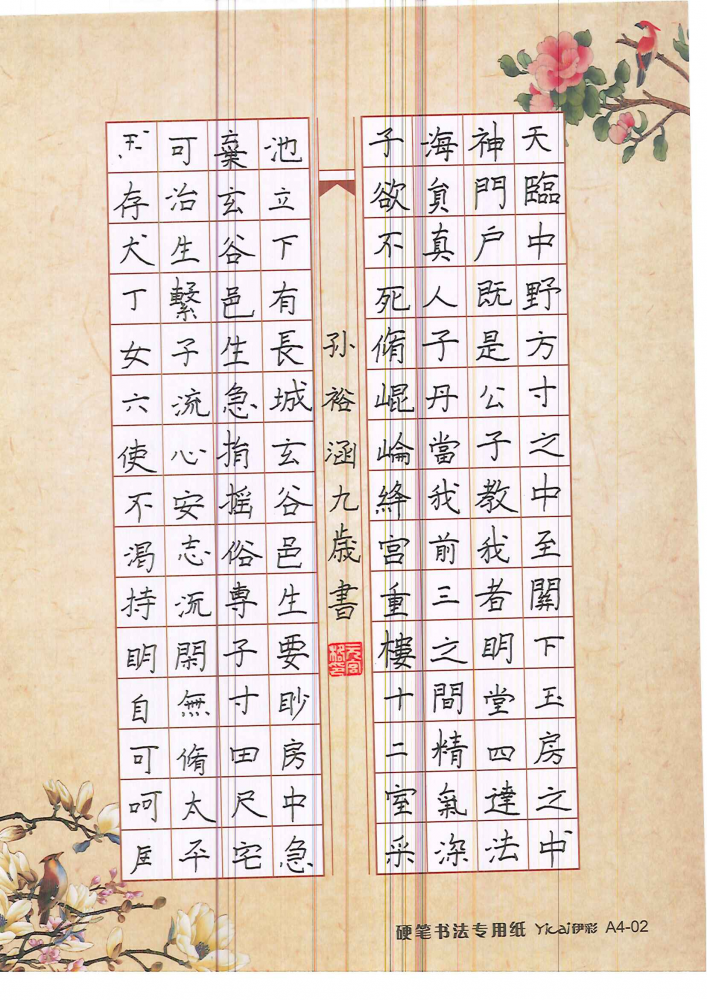 天臨中野方寸之中至關下玉房之中
神門戶既是公子教我者明堂四達法
海員真人子丹當我前三之間精氣深
子欲不死脩崐崘絳宮重樓十二室采
孙裕涵九歳書
池立下有長城玄谷邑生要眇房中急
棄玄谷邑生急指摇俗専子寸田尺宅
可治生繫子流心安志流閑無脩太平
存犬丁女六使不渴持明自可呵
硬笔书法专用纸 Yicai伊彩 A4-02